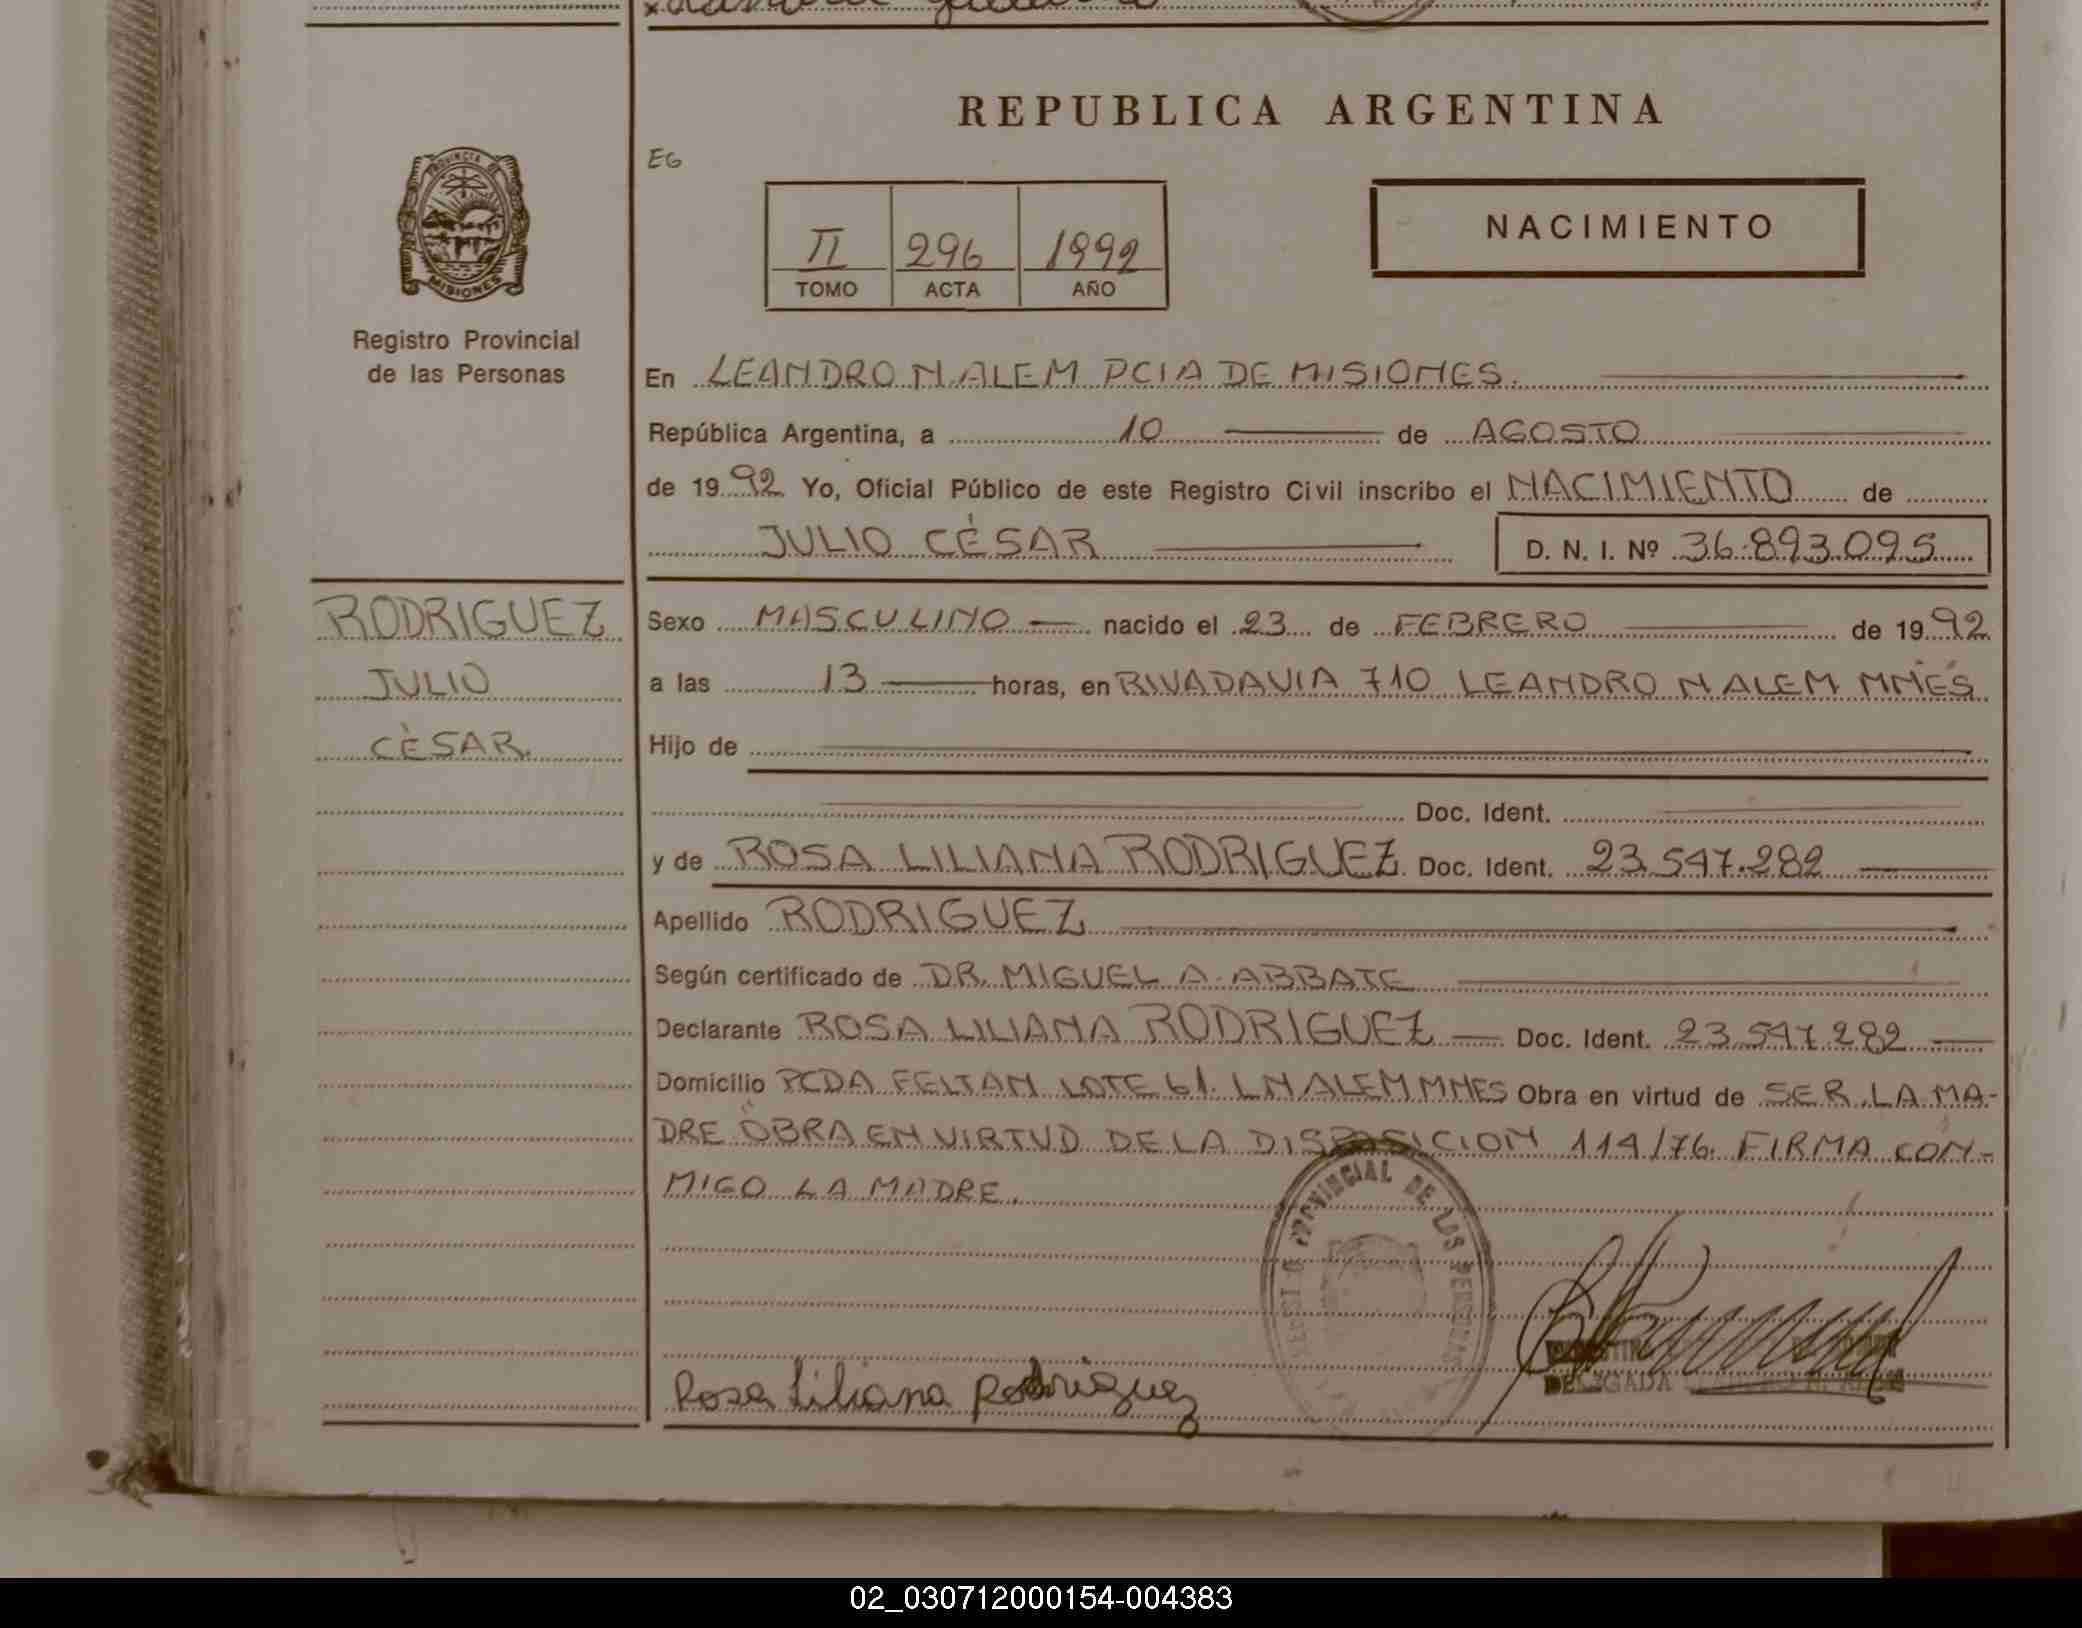 REPUBLICA ARGENTINA
E6
PROVINCIA DE
MISIONES
II 296 1992
TOMO ACTA AÑO
NACIMIENTO
Registro Provincial
de las Personas
En LEANDRO N. ALEM PCIA DE MISIONES.
República Argentina, a 10 de AGOSTO
de 1992 Yo, Oficial Público de este Registro Civil inscribo el NACIMIENTO de
JULIO CÉSAR D. N. I. Nº 36.893.095
RODRIGUEZ
JULIO
CÉSAR.
Sexo MASCULINO nacido el 23 de FEBRERO de 1992
a las 13 horas, en RIVADAVIA 710 LEANDRO N ALEM MNES
Hijo de
Doc. Ident.
y de ROSA LILIANA RODRIGUEZ Doc. Ident. 23.547.282
Apellido RODRIGUEZ
Según certificado de DR. MIGUEL A. ABBATE
Declarante ROSA LILIANA RODRIGUEZ Doc. Ident. 23.547.282
Domicilio PCDA. FELTAN LOTE 61. LN ALEM MNES Obra en virtud de SER LA MA-
DRE OBRA EN VIRTUD DE LA DISPOSICION 114/76. FIRMA CON-
MIGO LA MADRE.
PROVINCIAL DE LAS PERSONAS
Rosa Liliana Rodriguez
DELEGADA
02_030712000154-004383